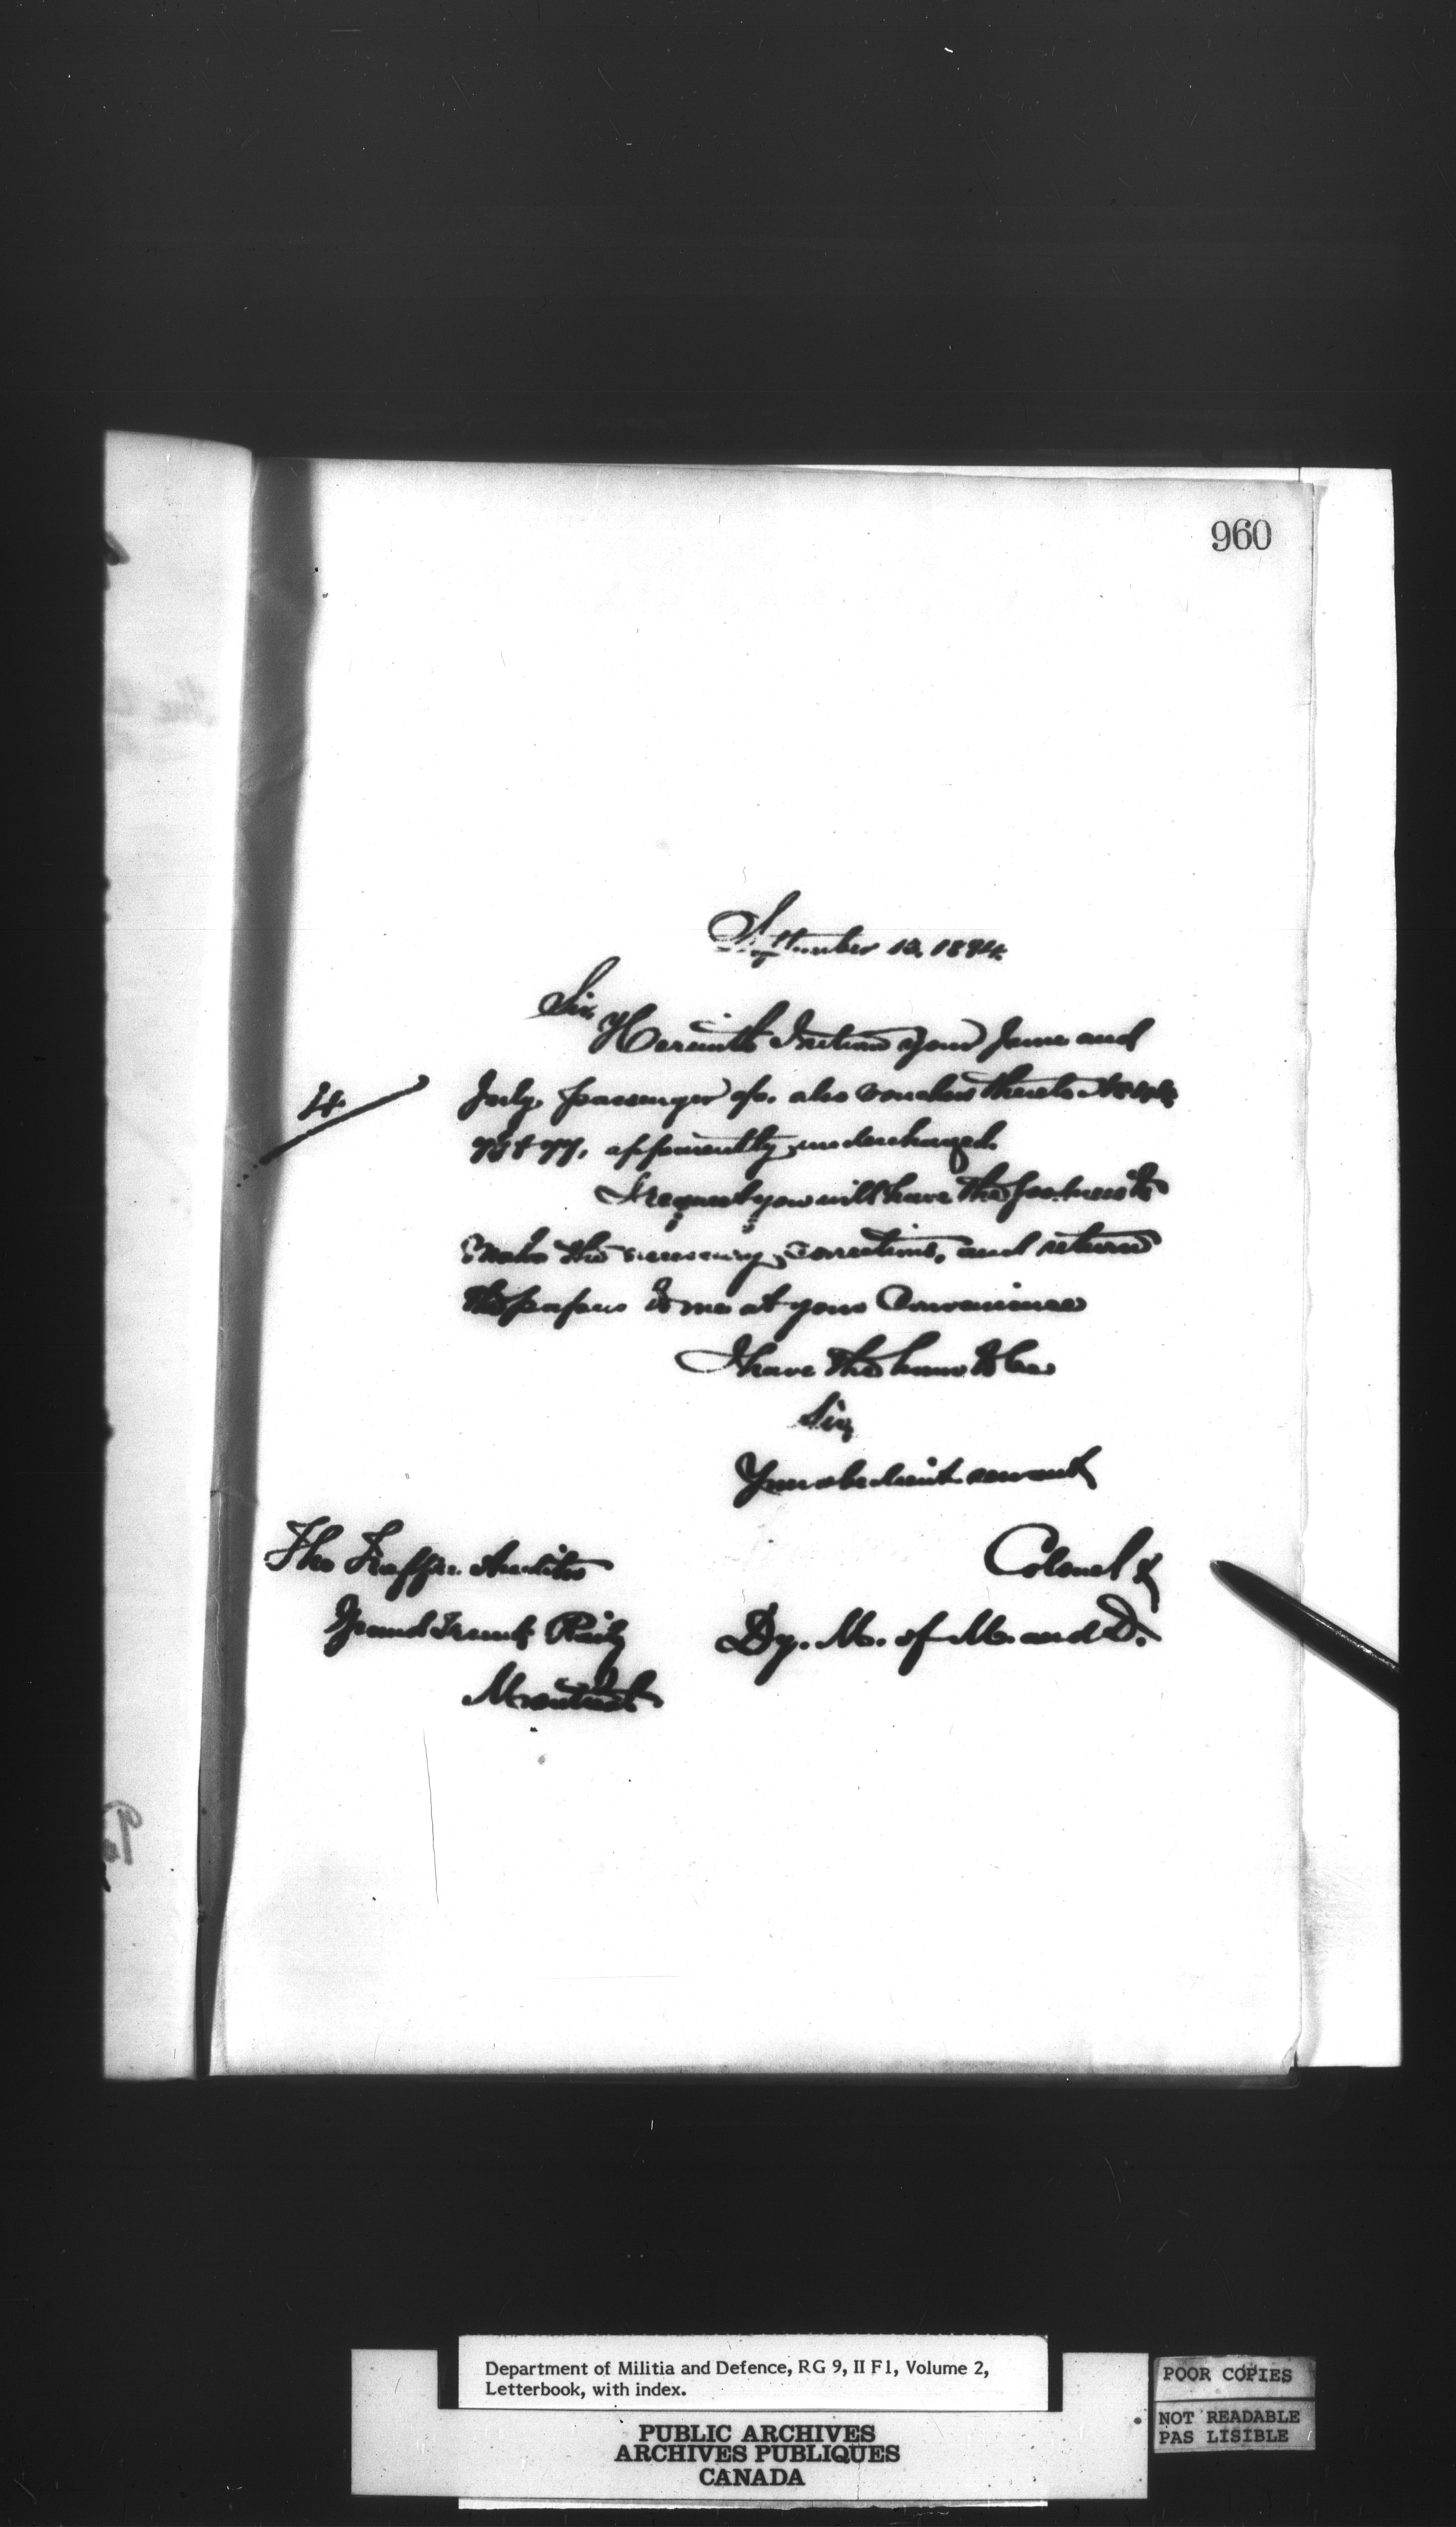 960
September 13, 1894.
Sir,
Herewith I return your June and
4
July passenger a/c. also vouchers thereto
75 & 77, apparently undercharged.
I request you will have the goodness to
make the necessary corrections, and return
the papers to me at your Convenience
I have the honor to be
Sir,
Your obedient servant
The Traffic Auditor
Colonel &
Grand Trunk Raily
Dy. M. of M. and D.
Montreal
Department of Militia and Defence, RG 9, II F1, Volume 2,
Letterbook, with index.
PUBLIC ARCHIVES
ARCHIVES PUBLIQUES
CANADA
POOR COPIES
NOT READABLE
PAS LISIBLE